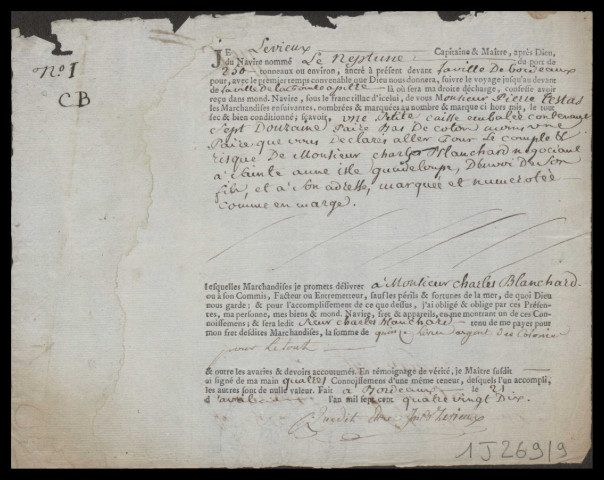 N° 1
CB
JE Levieux Capitaine & Maître, après Dieu,
du Navire nommé Le Neptune du port de
250 tonneaux ou environ, ancré à présent devant la ville De bordeaux
pour, avec le premier temps convenable que Dieu nous donnera, suivre le voyage jusqu'au devant
de la ville De la Pointe a pitre là où sera ma droite décharge, confesse avoir
reçu dans mond. Navire, sous le franc tillac d'icelui, de vous Monsieur Pierre Testas
les Marchandises ensuivantes, nombrées & marquées au nombre & marque ci hors mis, le tout
sec & bien conditionné, sçavoir, une Petite caisse embalée contenant
Sept Douzaine Paire Bas De coton moins une
Paire que vous declarés aller Pour Le compte &
risque De Monsieur charles Blanchard negociant
a Sainte anne isle guadeloupe, D'envoi De son
fils, et a son adresse, marquée et numerotée
Comme en marge.
lesquelles Marchandises je promets délivrer à Monsieur charles Blanchard.
ou à son Commis, Facteur ou Entremetteur, sauf les périls & fortunes de la mer, de quoi Dieu
nous garde: & pour l'accomplissement de ce que dessus, j'ai obligé & oblige par ces Présen-
tes, ma personne, mes biens & mond. Navire, fret & appareils, en me montrant un de ces Con-
noissemens; & sera ledit Sieur charles Blanchard tenu de me payer pour
mon fret desdites Marchandises, la somme de quinze Livres argent Des Colonies
pour Le tout
& outre les avaries & devoirs accoutumés. En témoignage de vérité, je Maître susdit
ai signé de ma main quatres Connoissemens d'une même teneur, desquels l'un accompli,
les autres sont de nulle valeur. Fait à Bordeaux le 21
d l'an mil sept cent quatre vingt Dix.
Levieux
1J269/9